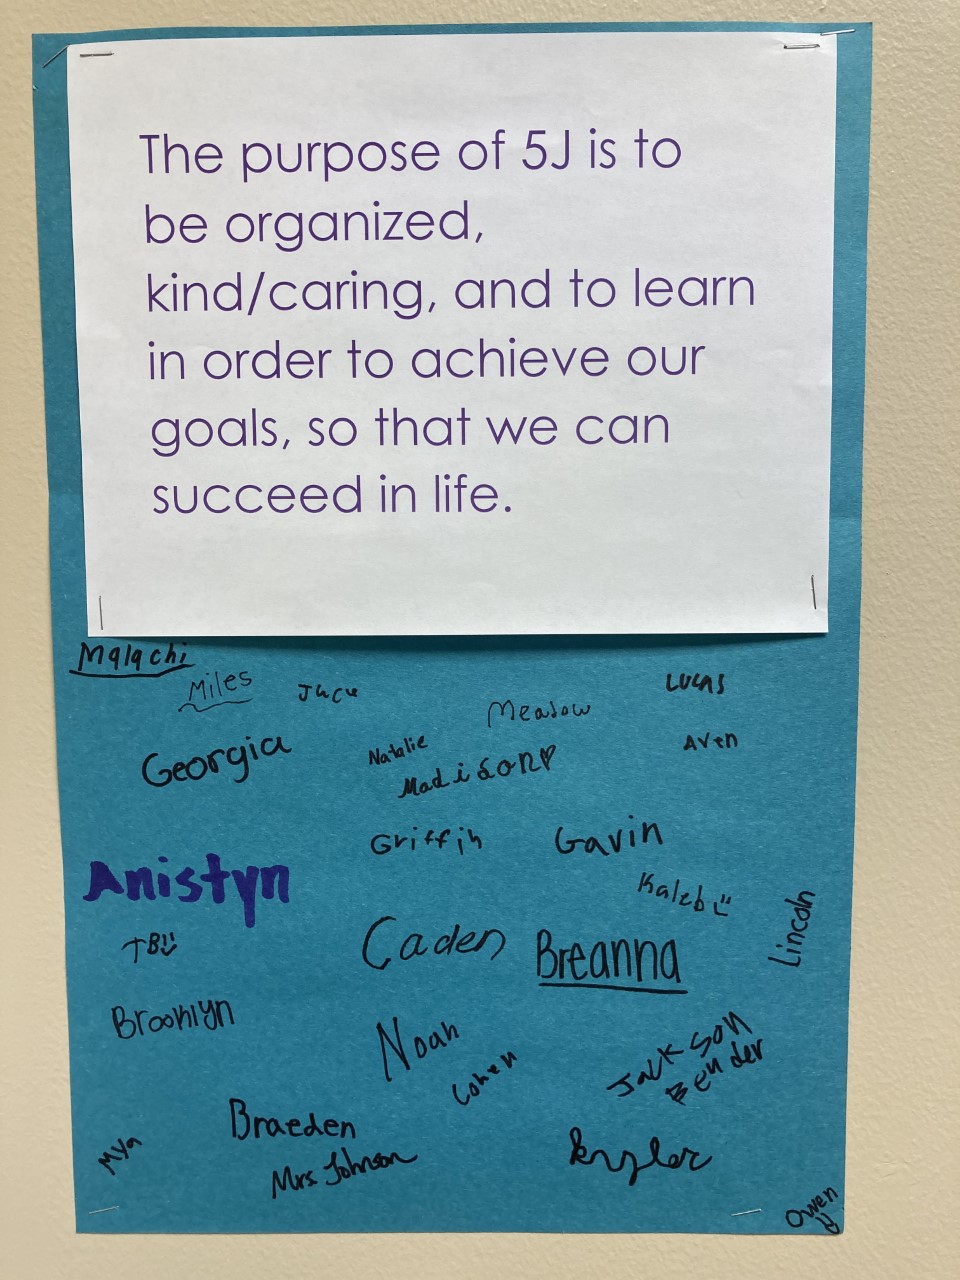 The purpose of 5J is to
be organized,
kind/caring, and to learn
in order to achieve our
goals, so that we can
succeed in life.
Malachi
Miles
Meadow
Lucas
Georgia
Natalie
Madison
Aven
Griffin
Gavin
Anistyn
Kaleb
Lincoln
TB
Caden
Breanna
Brooklyn
Noah
Cohen
Jackson
Bender
Braeden
Mya
Mrs. Johnson
Kyler
Owen